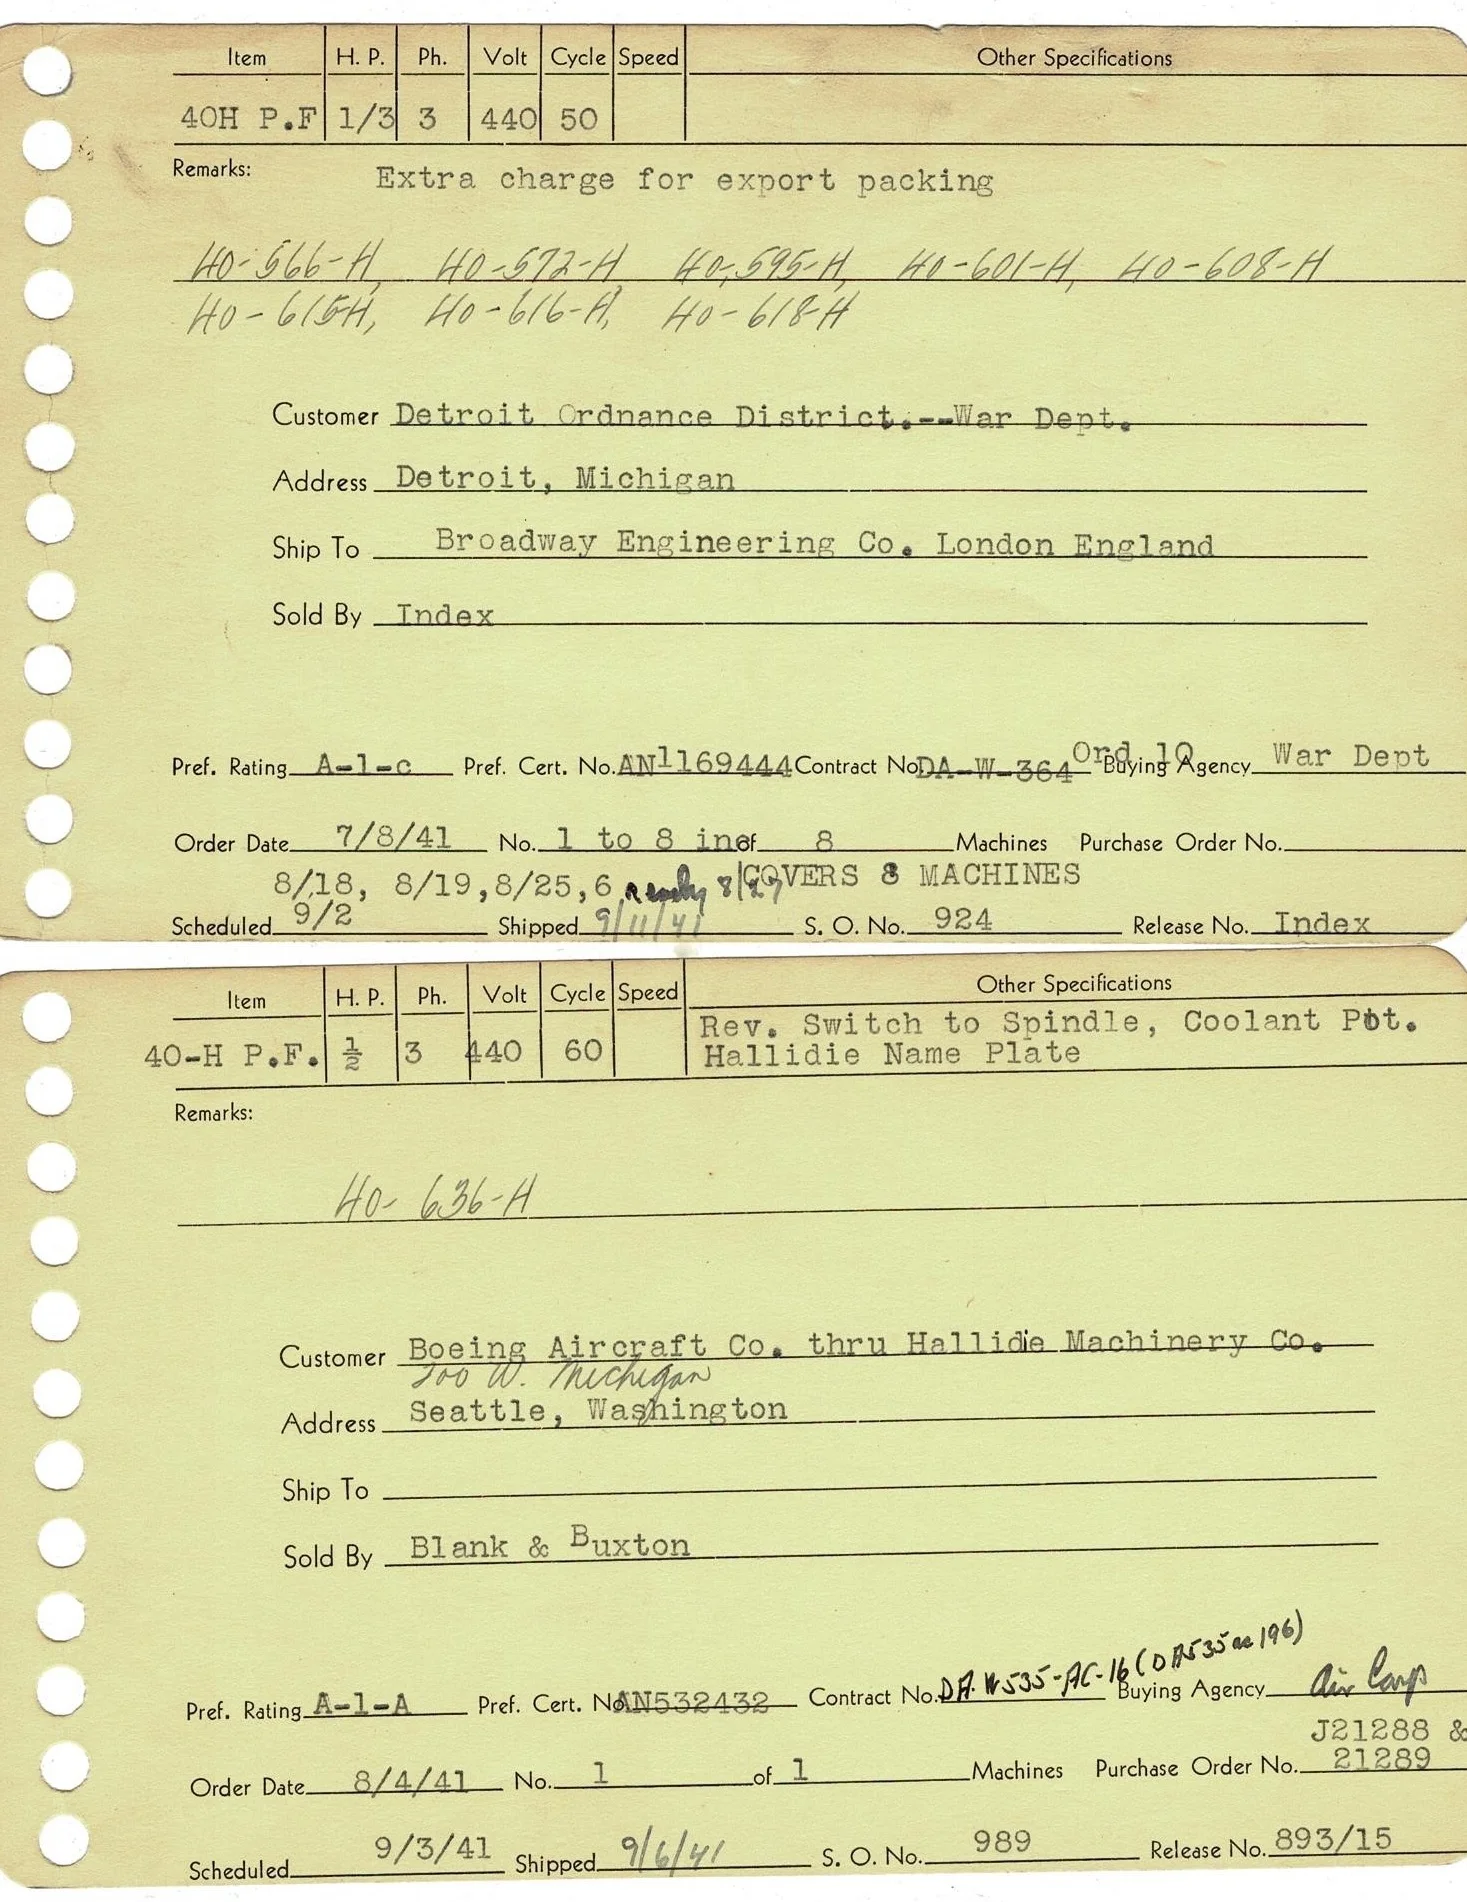 Item H. P. Ph. Volt Cycle Speed Other Specifications
40H P.F 1/3 3 440 50
Remarks: Extra charge for export packing
40-566-H, 40-572-H, 40-595-H, 40-601-H, 40-608-H
40-615H, 40-616-H, 40-618-H
Customer Detroit Ordnance District.--War Dept.
Address Detroit, Michigan
Ship To Broadway Engineering Co. London England
Sold By Index
Pref. Rating A-1-c Pref. Cert. No. AN1169444 Contract No. DA-W-364 Ord 10 Buying Agency War Dept
Order Date 7/8/41 No. 1 to 8 inc of 8 Machines Purchase Order No.
8/18, 8/19,8/25,6 ready 8/27 COVERS 8 MACHINES
Scheduled 9/2 Shipped 9/11/41 S. O. No. 924 Release No. Index
Item H. P. Ph. Volt Cycle Speed Other Specifications
Rev. Switch to Spindle, Coolant Pot.
40-H P.F. ½ 3 440 60 Hallidie Name Plate
Remarks:
40-636-H
Customer Boeing Aircraft Co. thru Hallidie Machinery Co.
200 W. Michigan
Address Seattle, Washington
Ship To
Sold By Blank & Buxton
Pref. Rating A-1-A Pref. Cert. No. AN532432 Contract No. DA-W535-AC-16 (DA535ac196) Buying Agency Air Corp
J21288 &
Order Date 8/4/41 No. 1 of 1 Machines Purchase Order No. 21289
Scheduled 9/3/41 Shipped 9/6/41 S. O. No. 989 Release No. 893/15